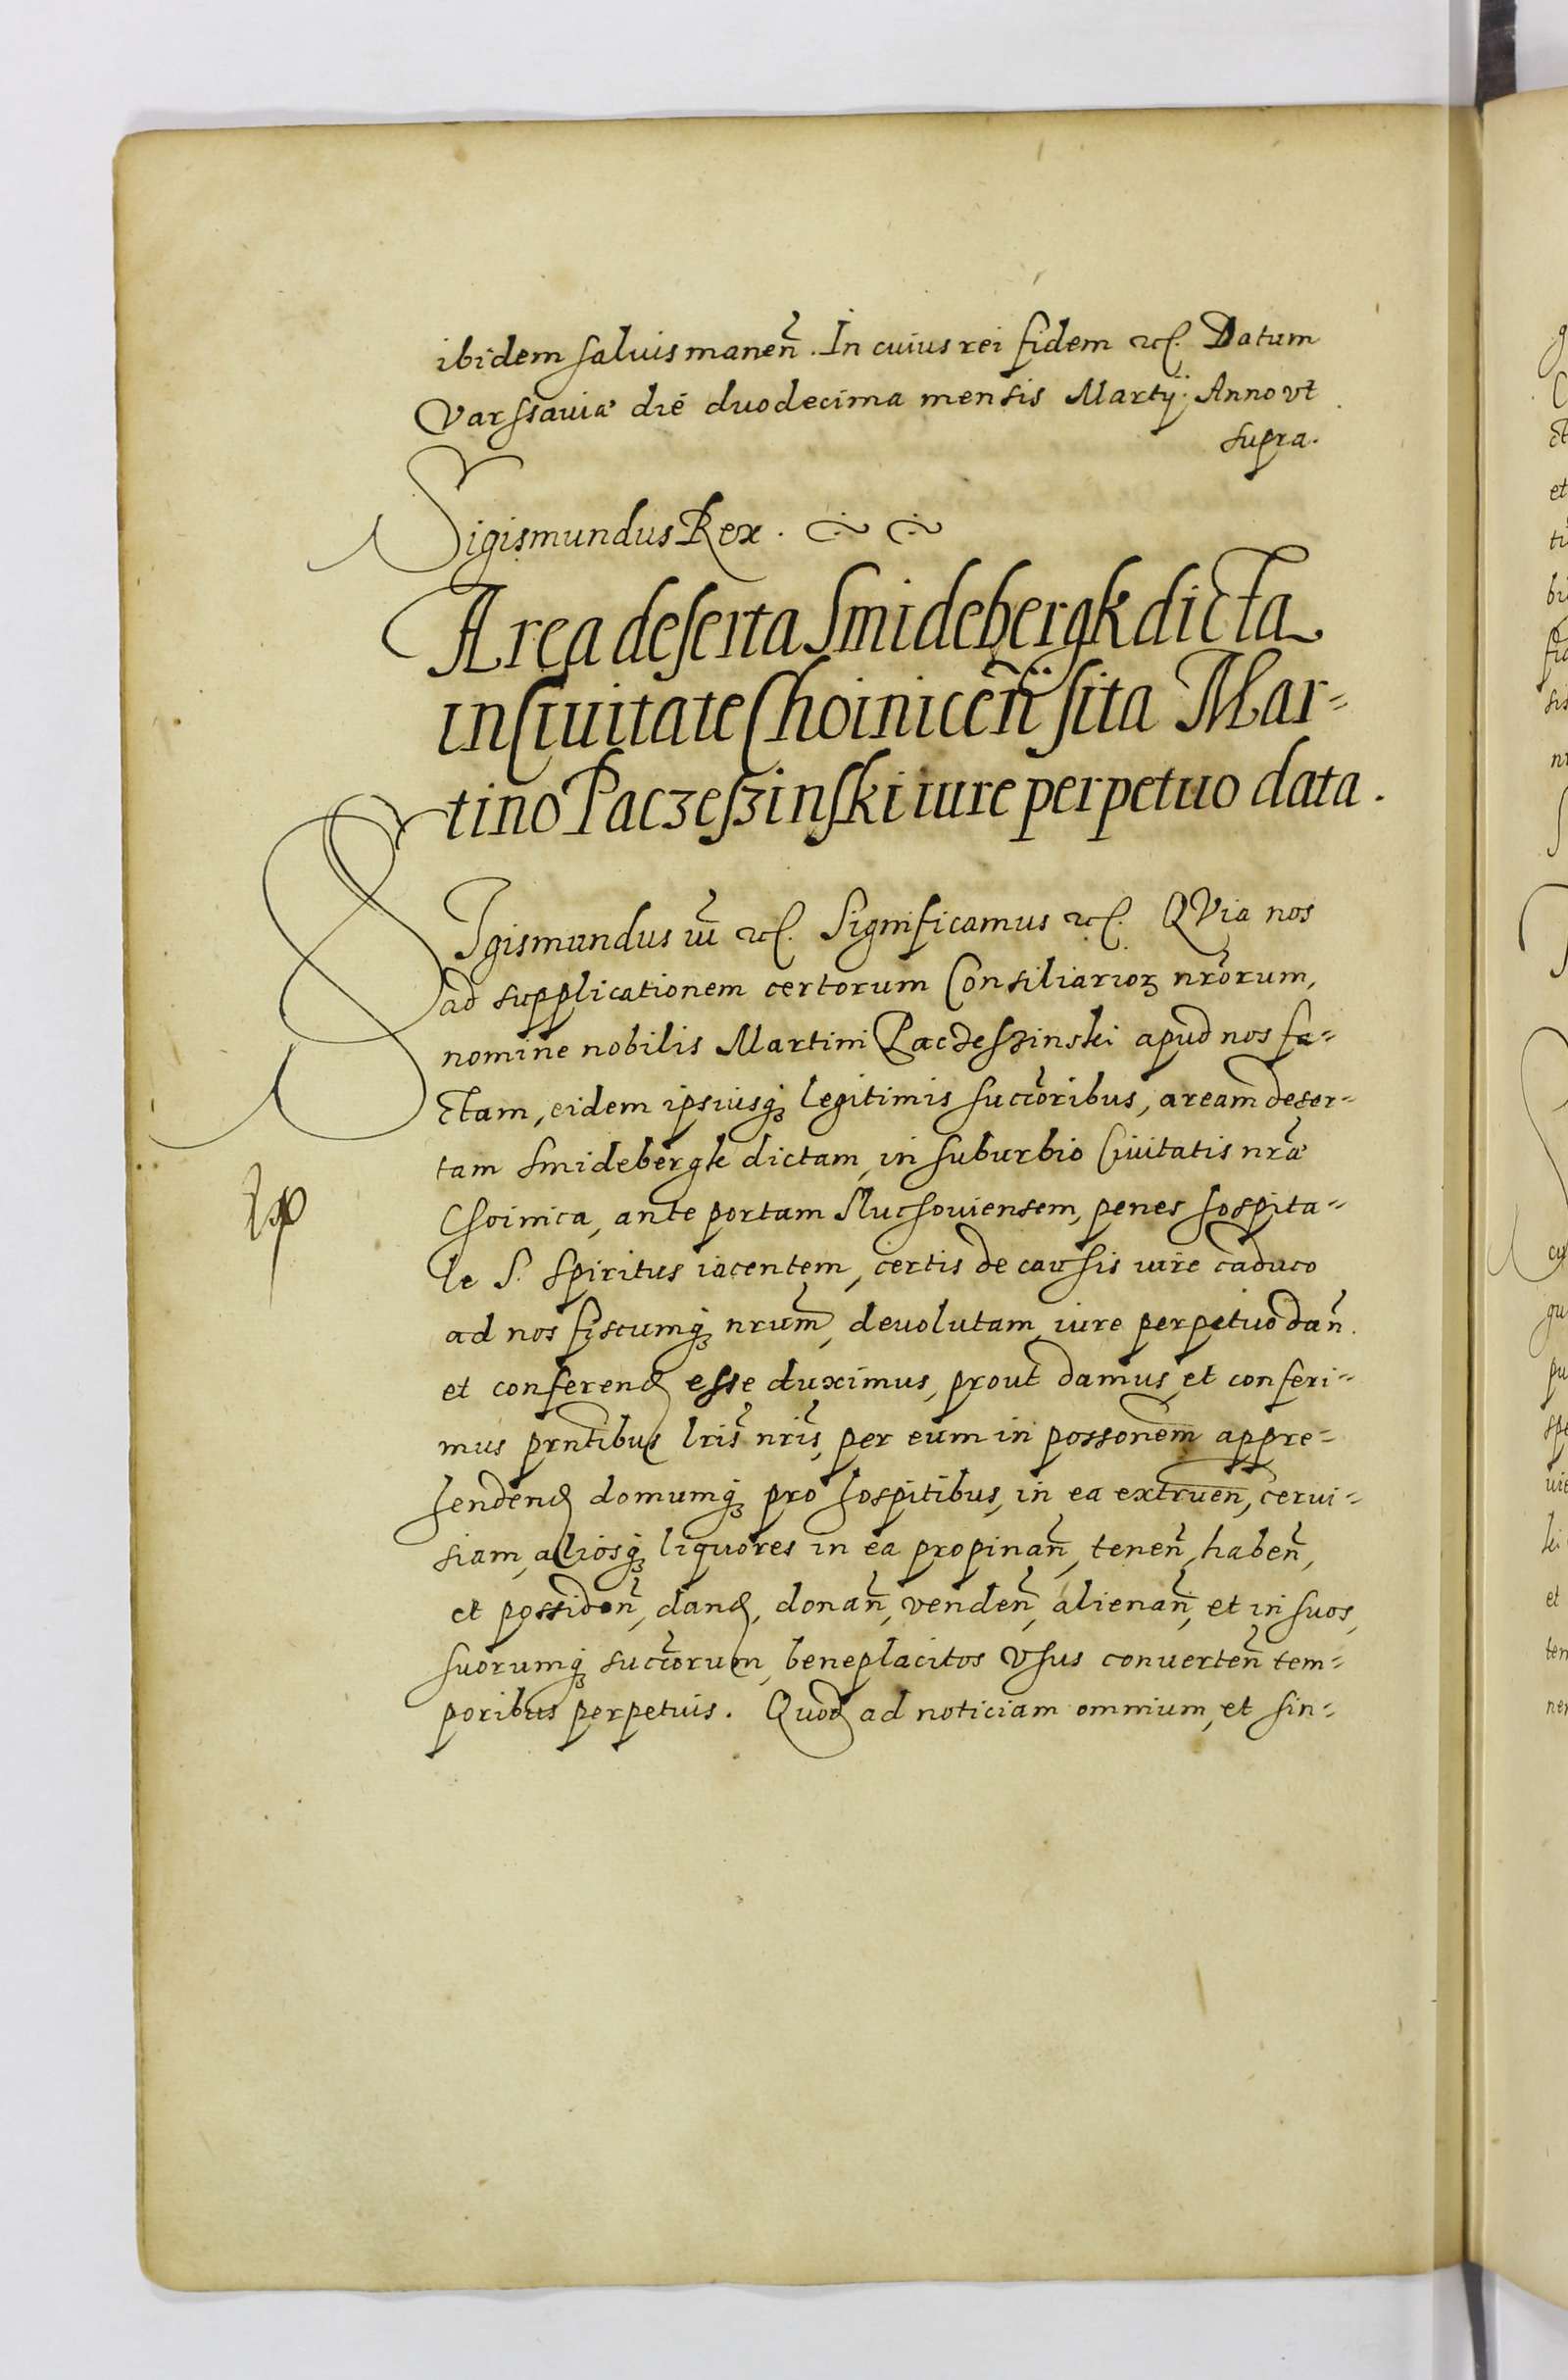 ibidem salvis manen̄. In cuius rei fidem ꝛc. Datum
Varssaviæ die duodecima mensis Martij. Anno vt
supra.
Sigismundus Rex.
Area deserta Smidebergk dicta
in Civitate Choinicen̄ sita Mar-
tino Paczeszinski iure perpetuo data.
SIgismundus iii ꝛc. Significamus ꝛc. QVia nos
ad supplicationem certorum Consiliarioꝝ nr̄orum,
nomine nobilis Martini Paczeszinski apud nos fa-
ctam, eidem ipsiusqꝫ legitimis succ̄oribus, aream deser-
tam Smidebergk dictam, in suburbio Civitatis nr̄æ
Choinica, ante portam Sluchoviensem, penes hospita-
le S. Spiritus iacentem, certis de causis iure caduco
ad nos fiscumqꝫ nrūm, devolutam, iure perpetuo dan̄.
et conferend esse duximus, prout damus, et conferi-
mus prn̄tibus lris̄ nris̄, per eum in possonēm appre-
hendend domumqꝫ pro hospitibus, in ea extruen̄, cervi-
siam, aliosqꝫ liquores in ea propinan̄, tenen̄, haben̄,
et possiden̄, dand, donan̄, venden̄, alienan̄, et in suos,
suorumqꝫ succ̄orum, beneplacitos vsus converten̄ tem-
poribus perpetuis. Quod ad noticiam omnium, et sin-